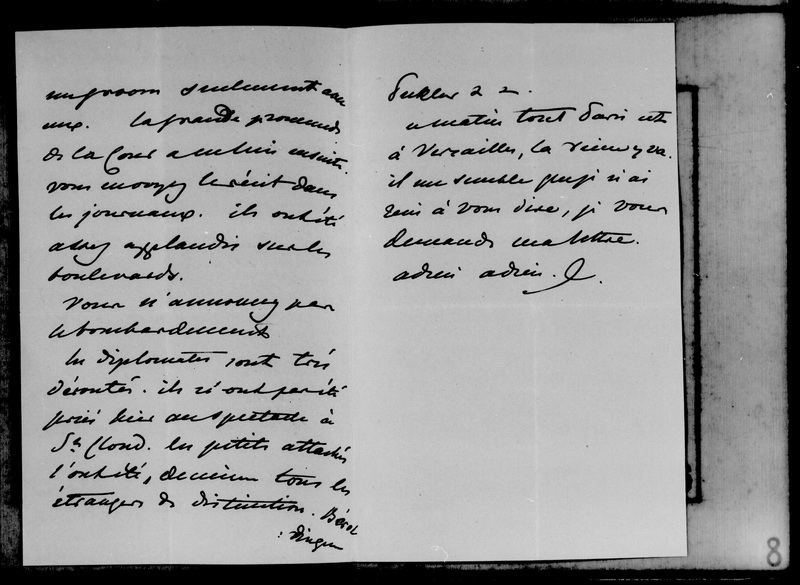 seulement aux
eux. la grande promenade
de la Cour a eu lieu ensuite.
vous en voyez le récit dans
les journaux. ils ont été
assez applaudis sur les
boulevards.
Vous n'annoncez pas
le bombardement
les diplomates sont très
déroutés. ils n'ont pas été
priés hier au spectacle à
St Cloud. les petits attachés
l'ont été, de même tous les
étrangers de distinction.
ce matin tout Paris est
à Versailles, la reine y va.
il me semble que je n'ai
rien à vous dire, je vous
demande ma lettre.
adieu adieu.
8